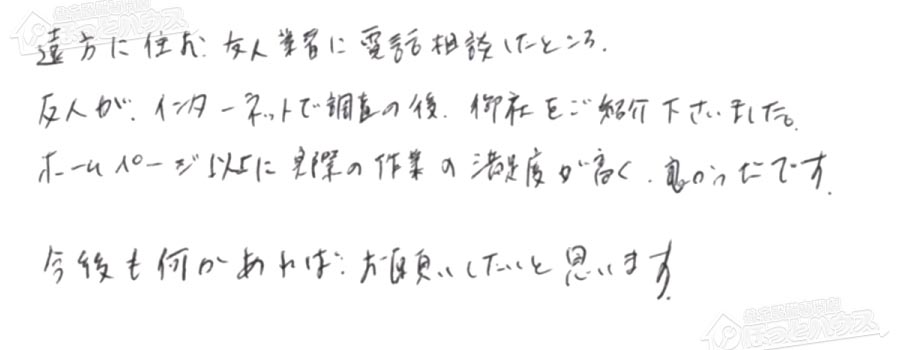 遠方に住む、友人業者に電話相談したところ、
友人が、インターネットで調査の後、御社をご紹介下さいました。
ホームページ以上に実際の作業の満足度が高く、良かったです。
今後も何かあれば、お願いしたいと思います。
ほっとハウス
ほっとハウス